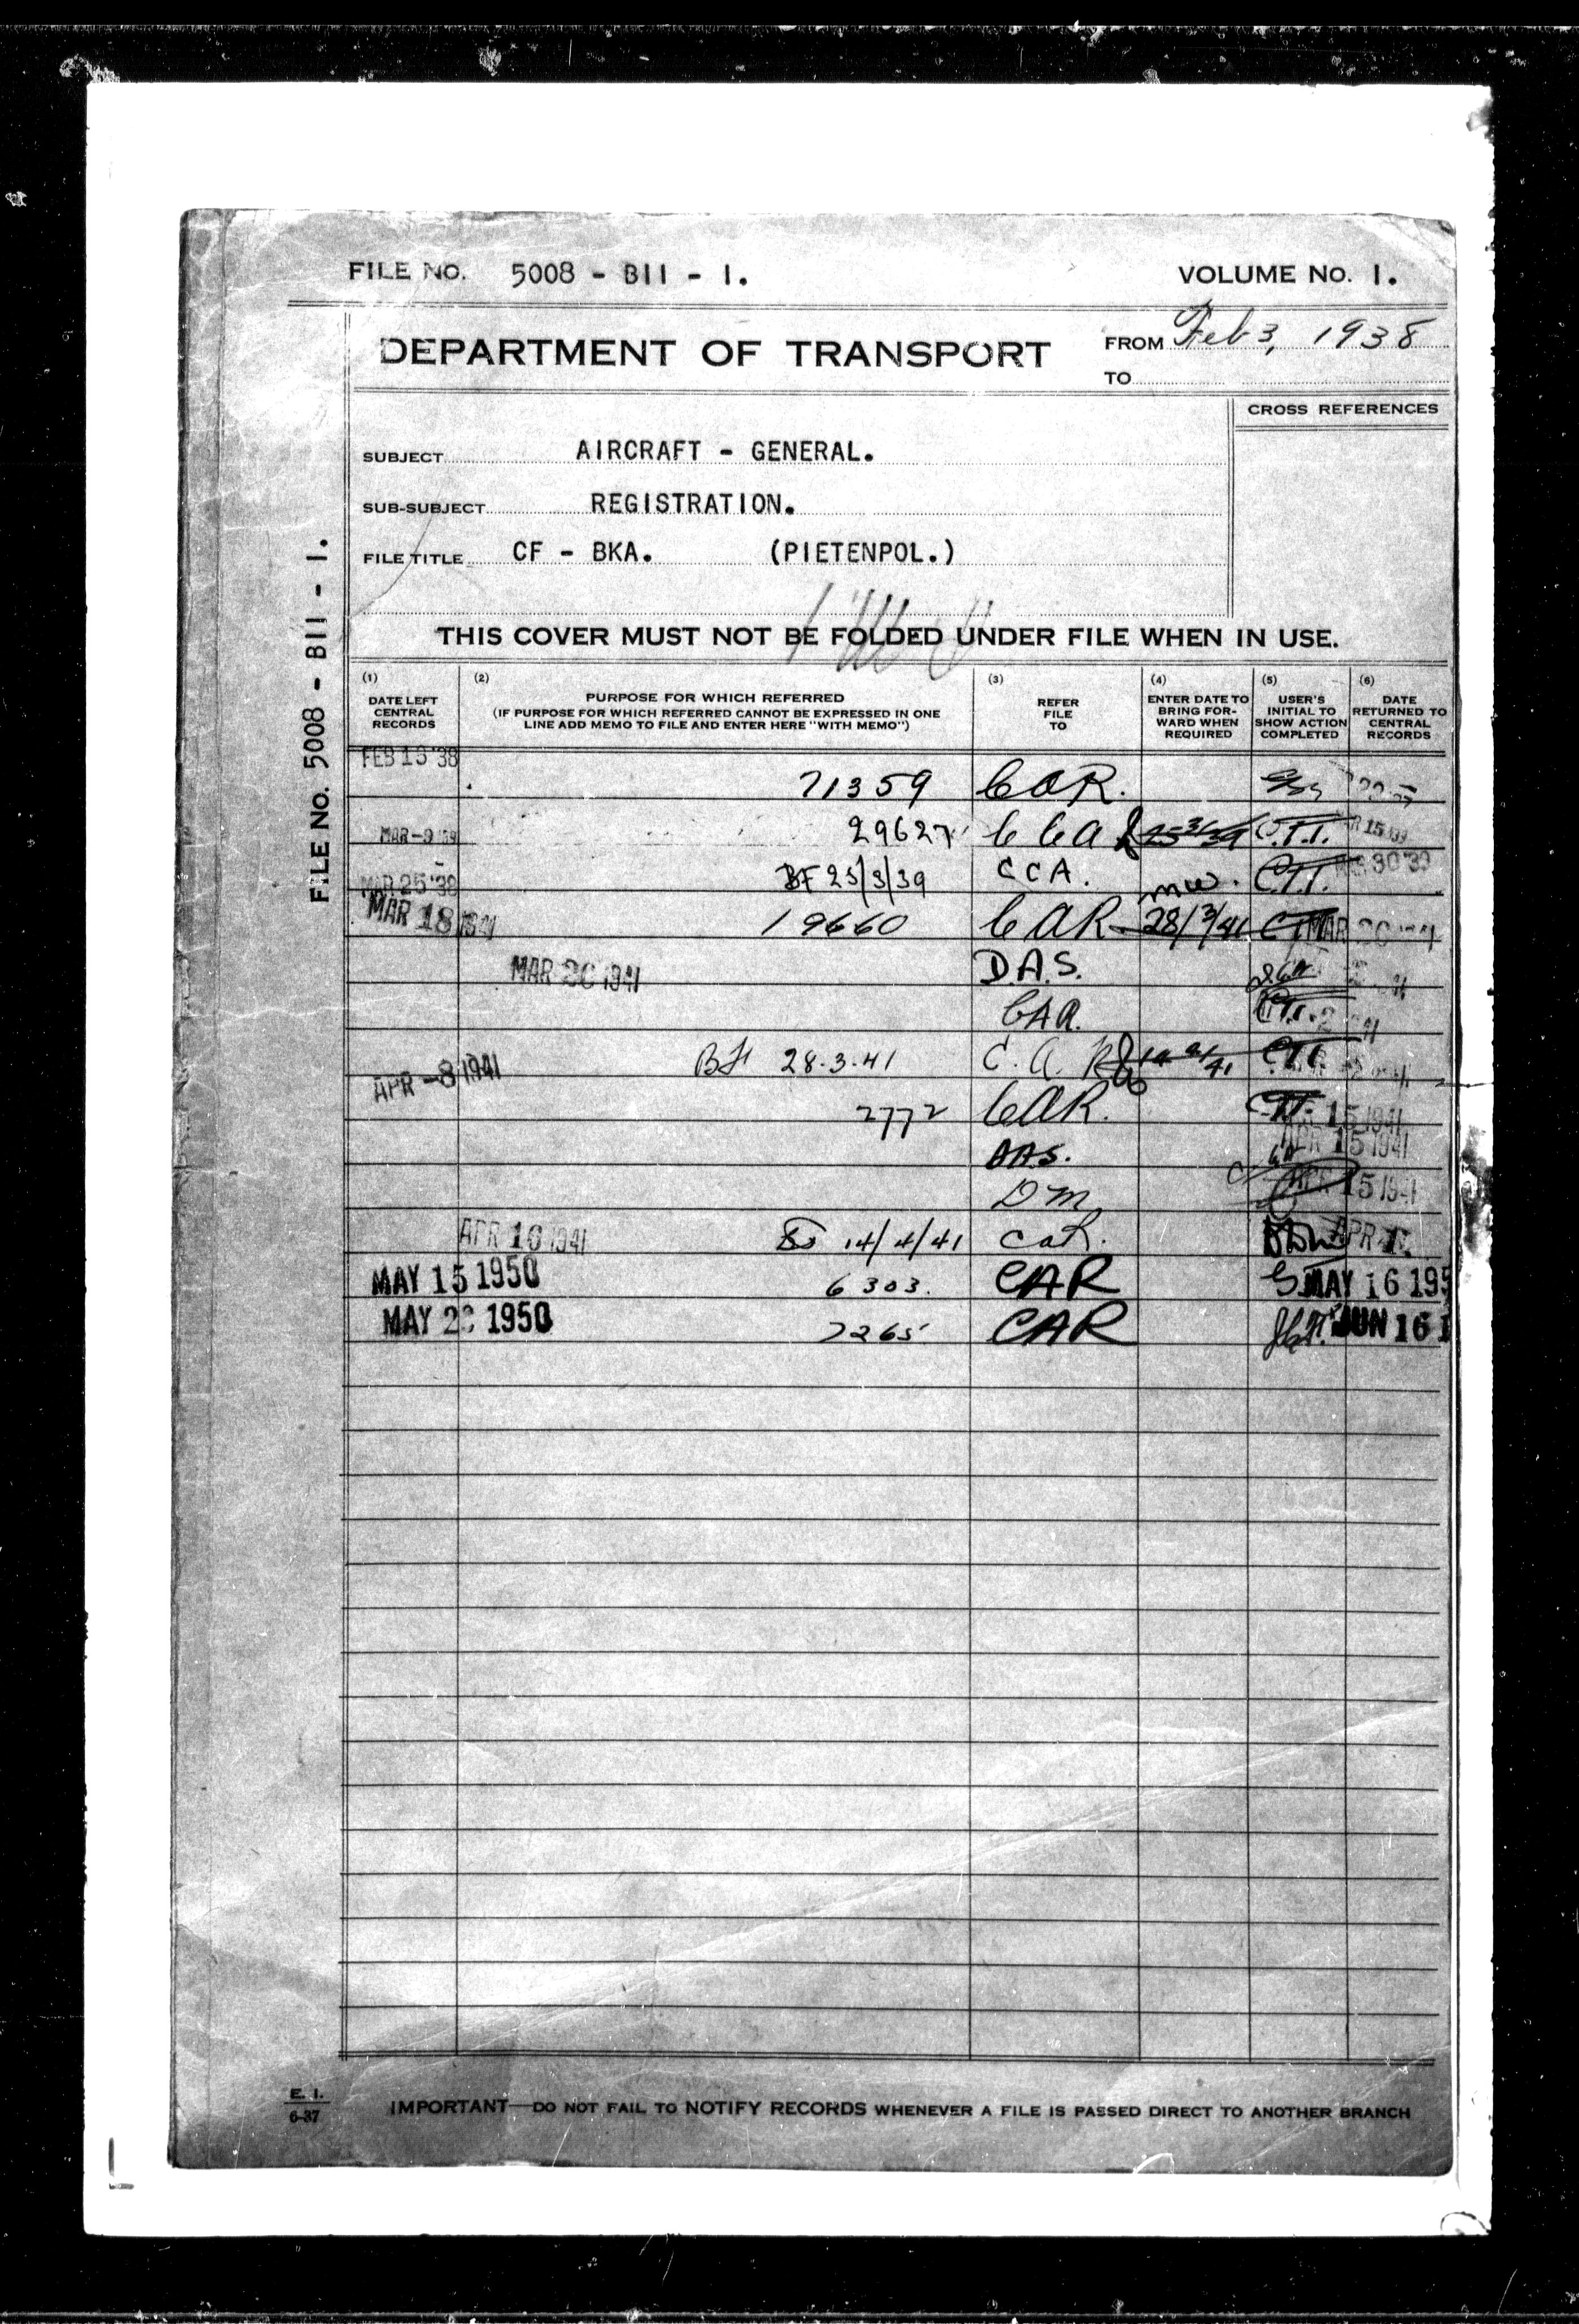 FILE NO. 5008 - B11 - 1.
VOLUME NO. 1.
DEPARTMENT OF TRANSPORT
FROM Feb 3, 1938
TO
CROSS REFERENCES
SUBJECT AIRCRAFT - GENERAL.
SUB-SUBJECT REGISTRATION.
FILE TITLE CF - BKA. (PIETENPOL.)
FILE NO. 5008 - B11 - 1.
THIS COVER MUST NOT BE FOLDED UNDER FILE WHEN IN USE.
(1) DATE LEFT CENTRAL RECORDS
(2) PURPOSE FOR WHICH REFERRED (IF PURPOSE FOR WHICH REFERRED CANNOT BE EXPRESSED IN ONE LINE ADD MEMO TO FILE AND ENTER HERE "WITH MEMO")
(3) REFER FILE TO
(4) ENTER DATE TO BRING FORWARD WHEN REQUIRED
(5) USER'S INITIAL TO SHOW ACTION COMPLETED
(6) DATE RETURNED TO CENTRAL RECORDS
71359 CAR.
MAR-9 '39 29627 CCA 25 3/39 C.T.T. 15 '39
BF 25/3/39 CCA. mw. C.T.T. 30 '39
MAR 18 1941 19660 CAR 28/3/41 CTT MAR
MAR 20 1941 D.A.S.
CAR. CTT.
APR -8 1941 BF 28.3.41 C.A.R CTT
2772 CAR. CTT. 15 1941
AAS. APR 15 1941
DM APR 15 1941
APR 10 1941 14/4/41 CAR. APR
MAY 15 1950 6303. CAR MAY 16 195
MAY 1950 7265 CAR JUN 16 1
E. 1.
6-37
IMPORTANT—DO NOT FAIL TO NOTIFY RECORDS WHENEVER A FILE IS PASSED DIRECT TO ANOTHER BRANCH